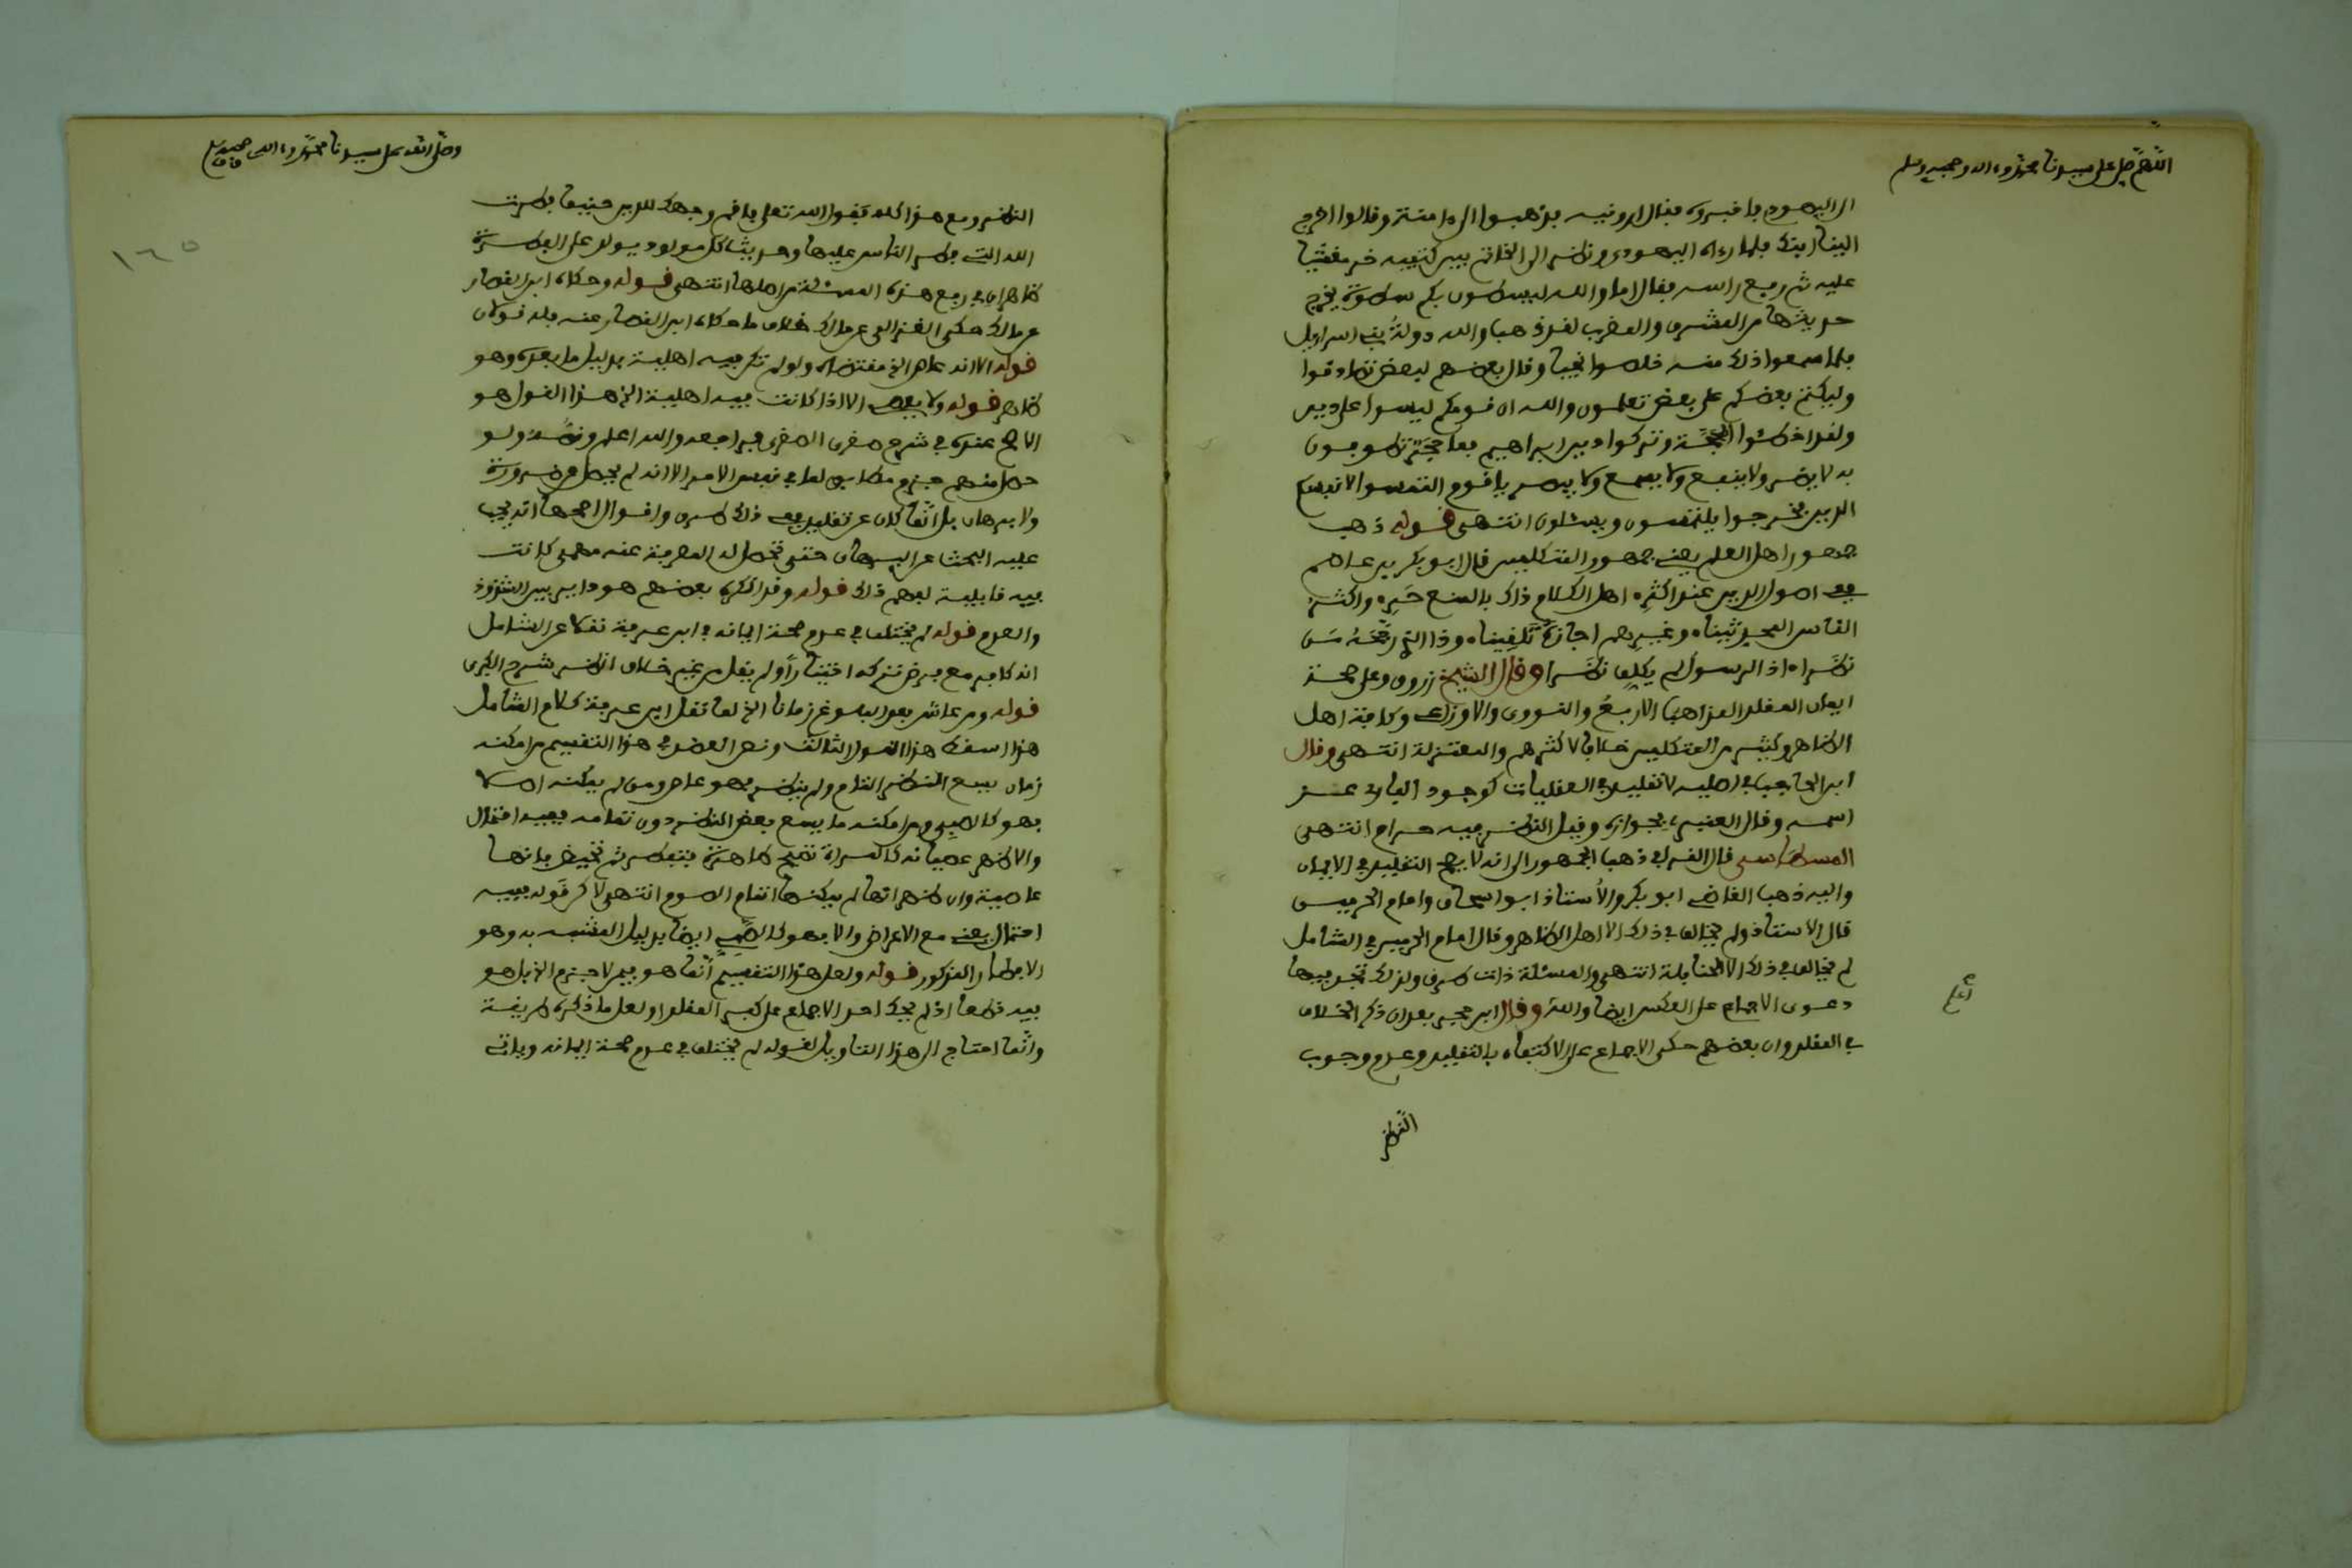 اللهم صل على سيدنا محمد وءاله وصحبه وسلم
الى اليهودي فاخبروه فقال ارونيه فذهبوا الى ءامنة وقالوا اخرجي
الينا ابنك فلما رءاه اليهودي ونظر الى الخاتم بين كتفيه خر مغشيا
عليه ثم رفع راسه فقال اما والله ليسطون بكم سطوة يخرج
حديثها من المشرق والمغرب لقد ذهبا والله دولة بني اسرائيل
فلما سمعوا ذلك منه خلصوا نجيا وقال بعضهم لبعض تصادقوا
وليكتم بعضكم على بعض تعلمون والله ان قومكم ليسوا على دين
ولقد اخطئوا الحجة وتركوا دين ابراهيم بما حجر تطوفون
به لا يضر ولا ينفع ولا يسمع ولا يبصر يا قوم التمسوا لانفسكم
الدين فخرجوا يلتمسون ويسئلون انتهى قوله ذهب
جمهور اهل العلم يعني جمهور المتكلمين قال ابو بكر بن عاصم
في اصول الدين عند اكثر اهل الكلام ذاك بالمنع حري واكثر
الناس المحدثينا وغيرهم اجازه تلفينا وذا الذي رجحه من
نظرا اذ الرسول لم يكلف نظرا وقال الشيخ زروق وعلى صحة
ايمان المقلد المذاهب الاربع والنووي والاوزاعي وكافة اهل
الظاهر وكثير من المتكلمين خلافا لاكثرهم والمعتزلة انتهى وقال
ابن الحاجب في اصليه لا تقليد في العقليات كوجود الباري عز
اسمه وقال العنبري بجوازه وقيل النظر فيه حرام انتهى
المسطاسي قال القرافي ذهب الجمهور الى انه لا يصح التقليد في الايمان
واليه ذهب القاضي ابو بكر والاستاذ ابو اسحاق وامام الحرمين
قال الاستاذ ولم يخالف في ذلك الا اهل الظاهر وقال امام الحرمين في الشامل
لم يخالف في ذلك الا الحنابلة انتهى والمسئلة ذات طرق ولذلك تجد فيها
دعوى الاجماع على العكس ايضا والله اعلم وقال ابن حجر بعد ان ذكر الخلاف
في المقلد وان بعضهم حكى الاجماع على الاكتفاء بالتقليد وعدم وجوب
النظر
وصلى الله على سيدنا محمد وءاله وصحبه وسلم
١٦٥
النظر ومع هذا كله فقول الله تعالى فاقم وجهك للدين حنيفا فطرت
الله التي فطر الناس عليها وحديث كل مولود يولد على الفطرة
ظاهران في رفع هذه المسئلة من اصلها انتهى قوله وحكاه ابن القصار
عن مالك حكى الغزالي عن مالك خلاف ما حكاه ابن القصار عنه فله قولان
قوله الا انه عاص الخ مقتضاه ولو لم تكن فيه اهلية بدليل ما بعده وهو
ظاهر قوله ولا يعصي الا اذا كانت فيه اهلية الخ هذا القول هو
الاصح عنده في شرح صغرى الصغرى فراجعه والله اعلم ونصه ولو
حصل منهم جزم مطابق لما في نفس الامر الا انه لم يحصل عن ضرورة
ولا برهان بل انما كان عن تقليد ففي ذلك طرق واقوال اصحها انه يجب
عليه البحث عن البرهان حتى تحصل له المعرفة عنه مهمى كانت
فيه قابلية لفهم ذلك قوله وقد انكره بعضهم هو داير بين الشذوذ
والعدم قوله لم يختلف في عدم صحة ايمانه ابن عرفة نقلا عن الشامل
انه كافر مع فرض تركه اختيارا ولم ينقل من غير خلاف انظر شرح الكبرى
قوله ومن عاش بعد البلوغ زمانا الخ لما نقل ابن عرفة كلام الشامل
هذا اسقط هذا القول الثالث ونص العضد في هذا التقسيم من امكنه
زمان يسع النظر التام ولم ينظر فهو عاص ومن لم يمكنه اصلا
فهو كالصبي ومن امكنه ما يسع بعض النظر دون تمامه ففيه احتمال
والاظهر عصيانه كالمراة تصبح طاهرة فتفطر ثم تحيض فانها
عاصية وان ظهر انها لم يمكنها اتمام الصوم انتهى لاكن قوله ففيه
احتمال يعني مع الاعراض والا فهو كالصبي ايضا بدليل المشبه به وهو
الافطار المذكور قوله ولعل هذا التقسيم انما هو فيمن لا جزم الخ بل هو
فيه قطعا اذ لم يحك احد الاجماع على كفر المقلد او لعل ما ذكره طريقة
وانما احتاج الى هذا التاويل لقوله لم يختلف في عدم صحة ايمانه وياتي